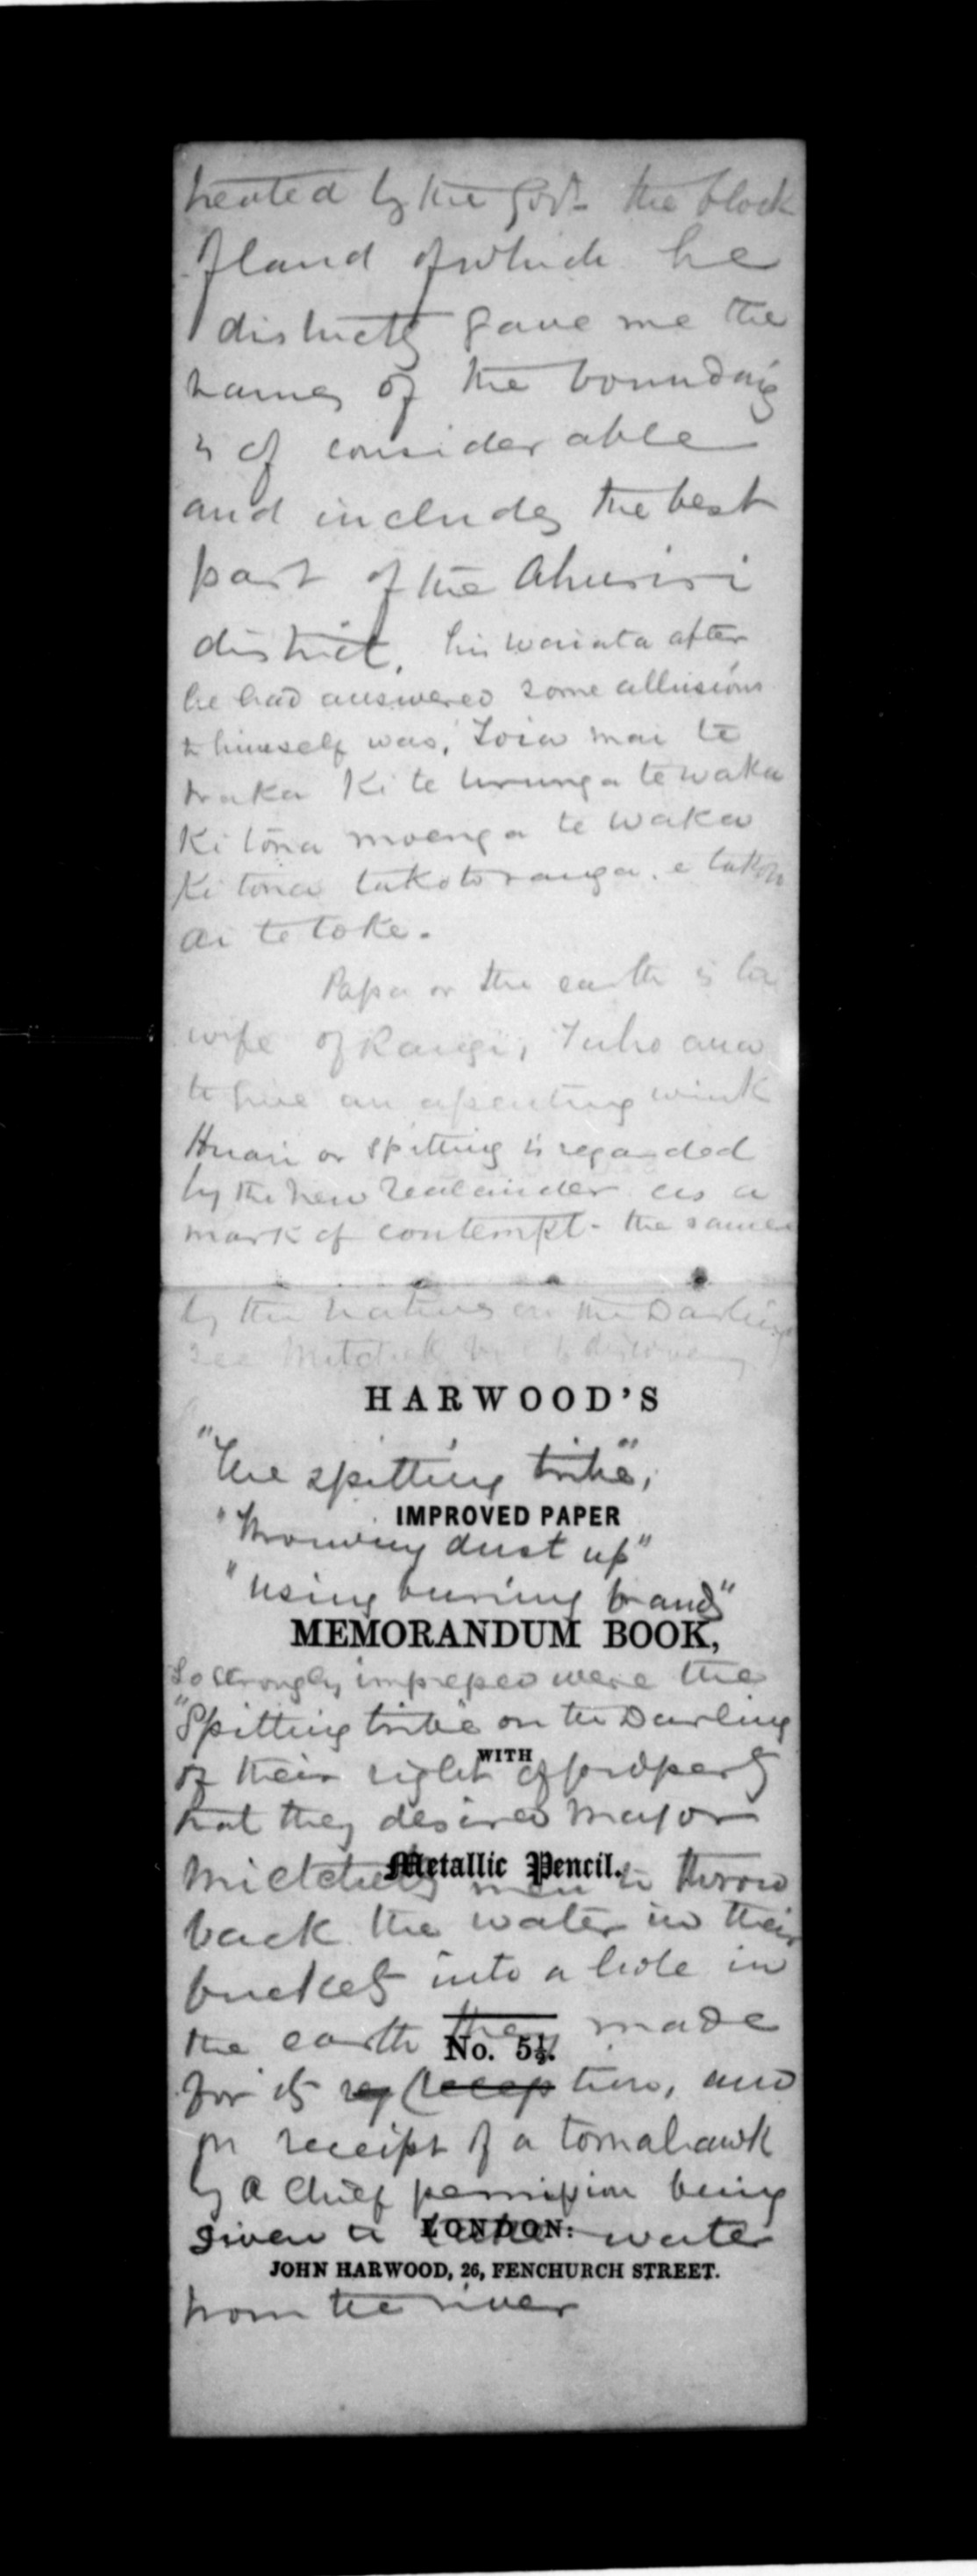 treated by the Govt. the block
of land of which he
distinctly gave me the
names of the boundary
is of considerable
and includes the best
part of the Ahuriri
district, his waiata after
he had answered some allusions
to himself was, Toia mai te
waka Ki te urunga te waka
Ki tona moenga te waka
Ki tona takotoranga. e takoto
ai te toke.
Papa or the earth is the
wife of Rangi,
to give an assenting wink
Huari or spitting is regarded
by the New Zealander as a
mark of contempt - the same
by the natives on the Darling
see
HARWOOD'S
"The spitting tribe",
IMPROVED PAPER
"Throwing dust up"
"using burning brands"
MEMORANDUM BOOK,
So strongly impressed were the
"Spitting tribe" on the Darling
WITH
of their right of property
that they desired Major
Metallic Pencil.
Mictchell's men to throw
back the water in their
buckets into a hole in
the earth they made
No. 5½.
for its reception, and
on receipt of a tomahawk
by a chief permission being
given to take water
LONDON:
JOHN HARWOOD, 26, FENCHURCH STREET.
from the river